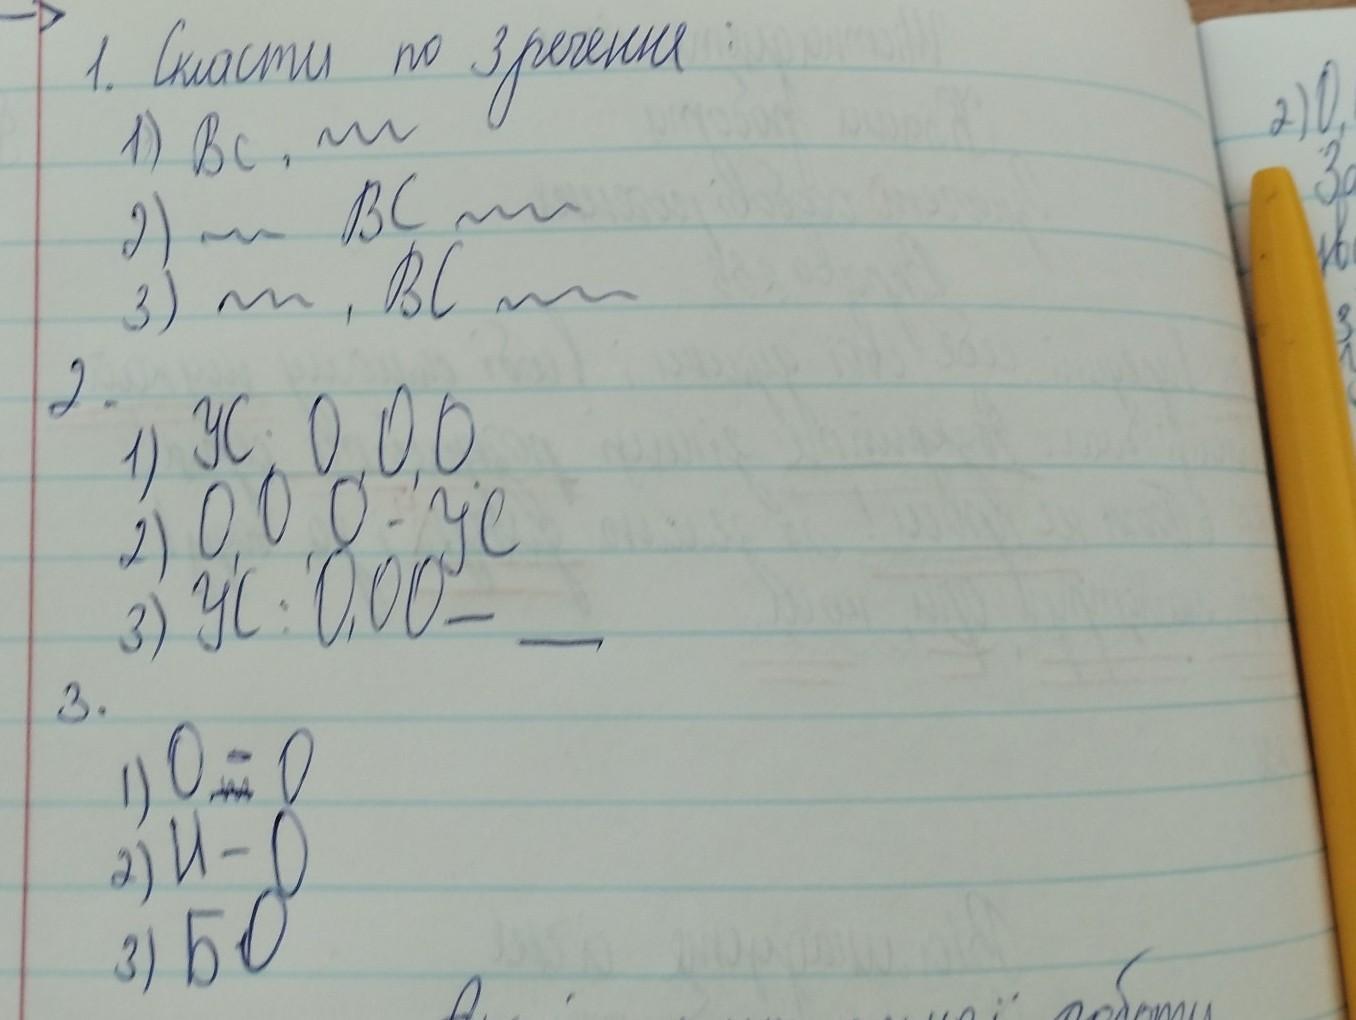 1. Скласти по 3 речення:
1) Вс,
2) ВС
3) , ВС
2.
1) УС: О, О, О
2) О, О, О - УС
3) УС: О, О О —
3.
1) О - О
2) И - О
3) Б, О
роботи
2) О,
За